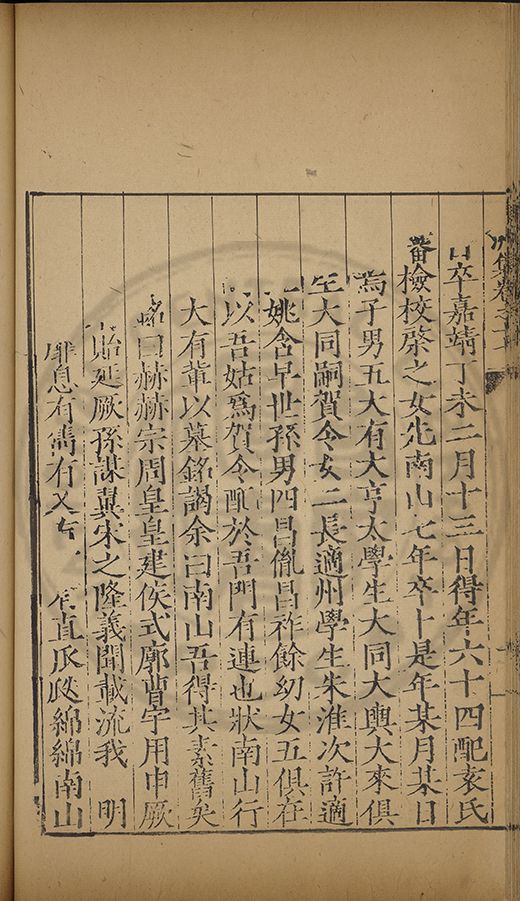 集卷之
日卒嘉靖丁未二月十三日得年六十四配袁氏
蕃檢校棨之女先南山七年卒卜是年某月某日
焉子男五大有大亨太學生大同大輿大來俱
生大同嗣賀令女二長適州學生朱淮次許適
姚含早世孫男四昌胤昌祚餘幼女五俱在
以吾姑爲賀令配於吾門有連也狀南山行
大有輩以墓銘謁余曰南山吾得其素舊矣
銘曰赫赫宗周皇皇建侯式廓曹宇用申厥
貽延厥孫謀冀宋之隆義聞載流我 明
息有雋有又 直瓜瓞綿綿南山